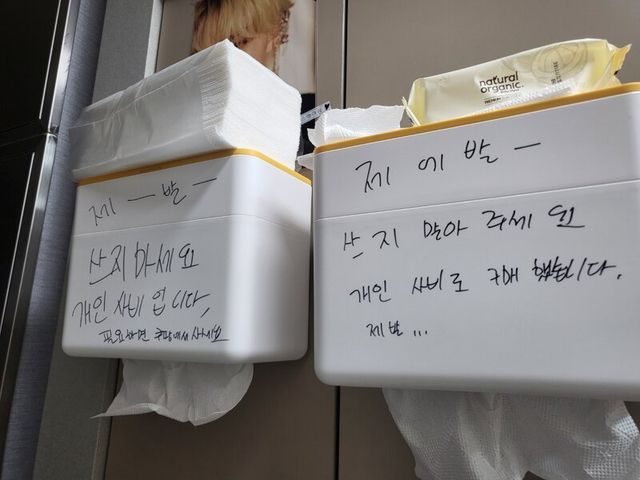 제 — 발 —
쓰지 마세요
개인 사비 입니다,
필요하면 쿠팡에서 사세요
natural
organic.
제 에 발 —
쓰지 말아 주세요
개인 사비로 구매 했습니다.
제발 ...